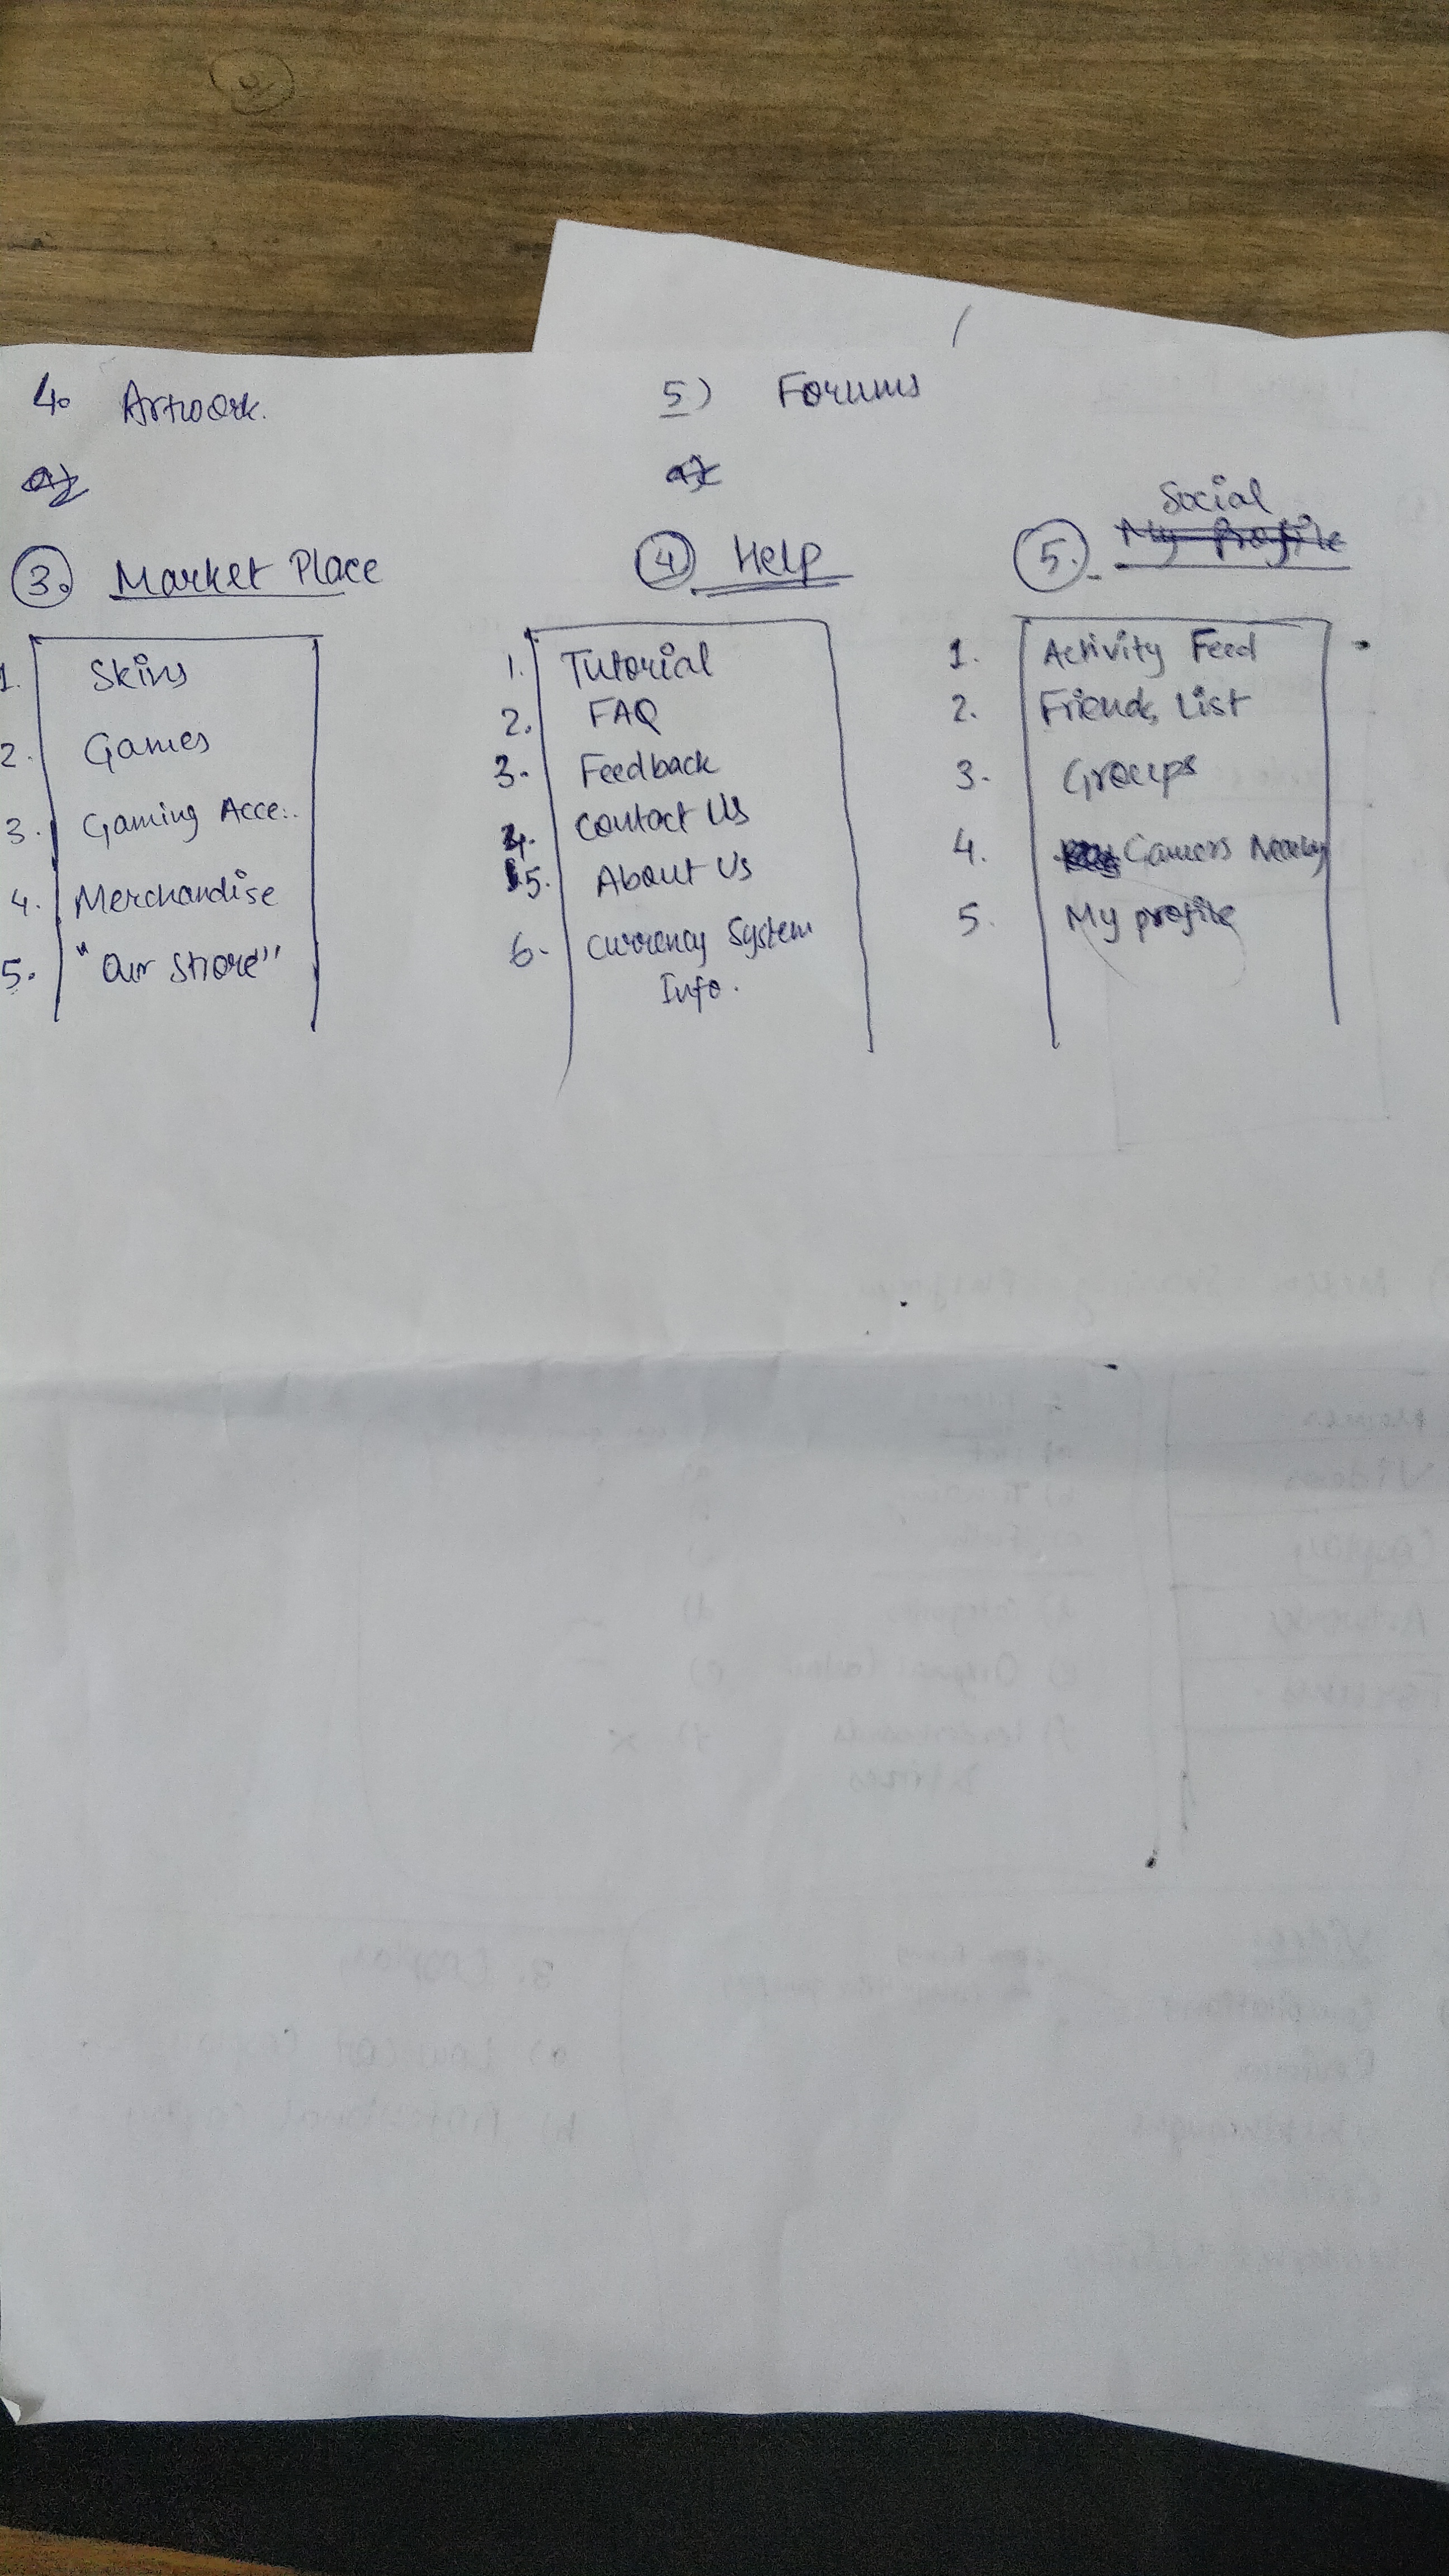 4. Artwork.
5) Forums
a)
a)
3. Market Place
1. Skins
2. Games
3. Gaming Acce..
4. Merchandise
5. "Our Store"
4 Help
1. Tutorial
2. FAQ
3. Feedback
4. Contact Us
5. About Us
6. Currency System
Info.
Social
5. My Profile
1. Activity Feed
2. Friends List
3. Groups
4. Gamers Nearby
5. My profile